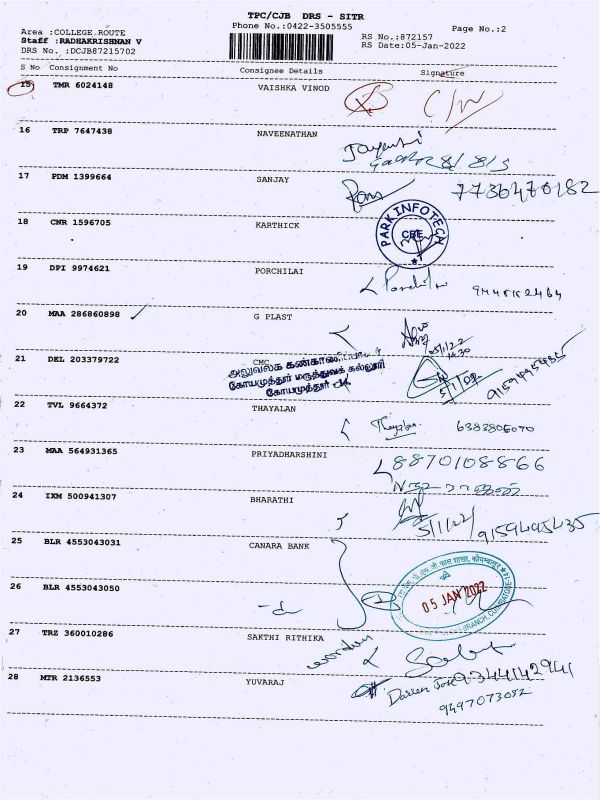 TPC/CJB DRS - SITR
Phone No.:0422-3505555
Page No.:2
Area :COLLEGE ROUTE
Staff :RADHAKRISHNAN V
DRS No. :DCJB87215702
RS No.:872157
RS Date:05-Jan-2022
S No Consignment No Consignee Details Signature
15 TMR 6024148 VAISHKA VINOD
16 TRP 7647438 NAVEENATHAN
17 PDM 1399664 SANJAY
7736470182
18 CNR 1596705 KARTHICK
PARK INFOTECH
CBE
19 DPI 9974621 PORCHILAI
20 MAA 286860898 G PLAST
21 DEL 203379722 CMC
கோயமுத்தூர் மருத்துவக் கல்லூரி
22 TVL 9664372 THAYALAN
Thayalan 6383806070
23 MAA 564931365 PRIYADHARSHINI
8870108866
24 IXM 500941307 BHARATHI
5/1/22 9159495435
25 BLR 4553043031 CANARA BANK
26 BLR 4553043050
05 JAN 2022
27 TRZ 360010286 SAKTHI RITHIKA
28 MTR 2136553 YUVARAJ
9344142941
9497073092